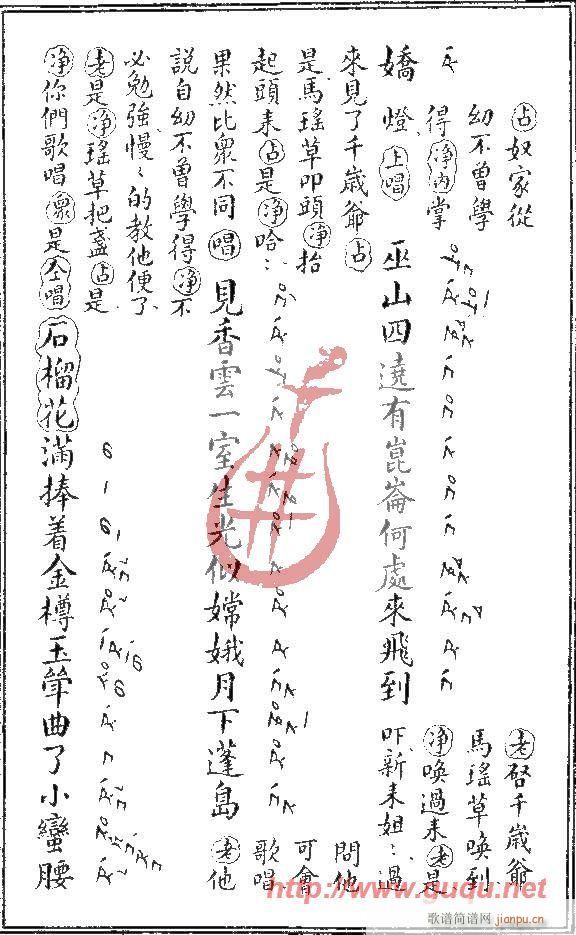 嬌
占奴家從
幼不曾學
得净内掌
燈上唱
巫山四遶有崑崙何處來飛到
老啓千歲爺
馬瑤草喚到
净喚過来老是
吓新来姐〻過
來見了千歲爺占
是馬瑤草叩頭净抬
起頭来占是净哈〻
果然比衆不同唱
見香雲一室生光似嫦娥月下蓬島
問他
可會
歌唱
老他
說自幼不曾學得净不
必勉強慢〻的教他便了
老是净瑤草把盞占是
净你們歌唱衆是仝唱
石榴花滿捧着金樽玉斝曲了小蠻腰
http://www.guqu.net
歌谱简谱网
jianpu.cn